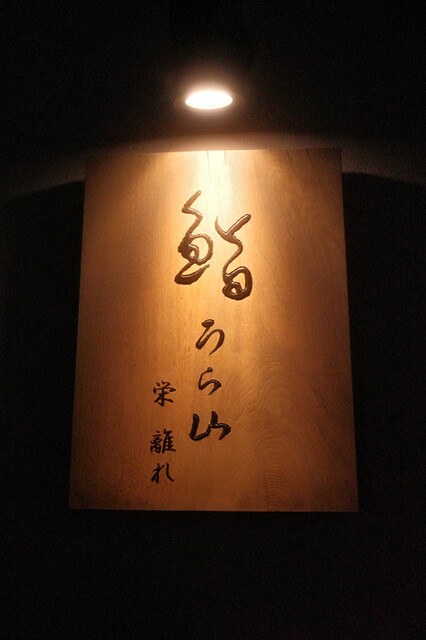 鮨
うら山
栄 離れ